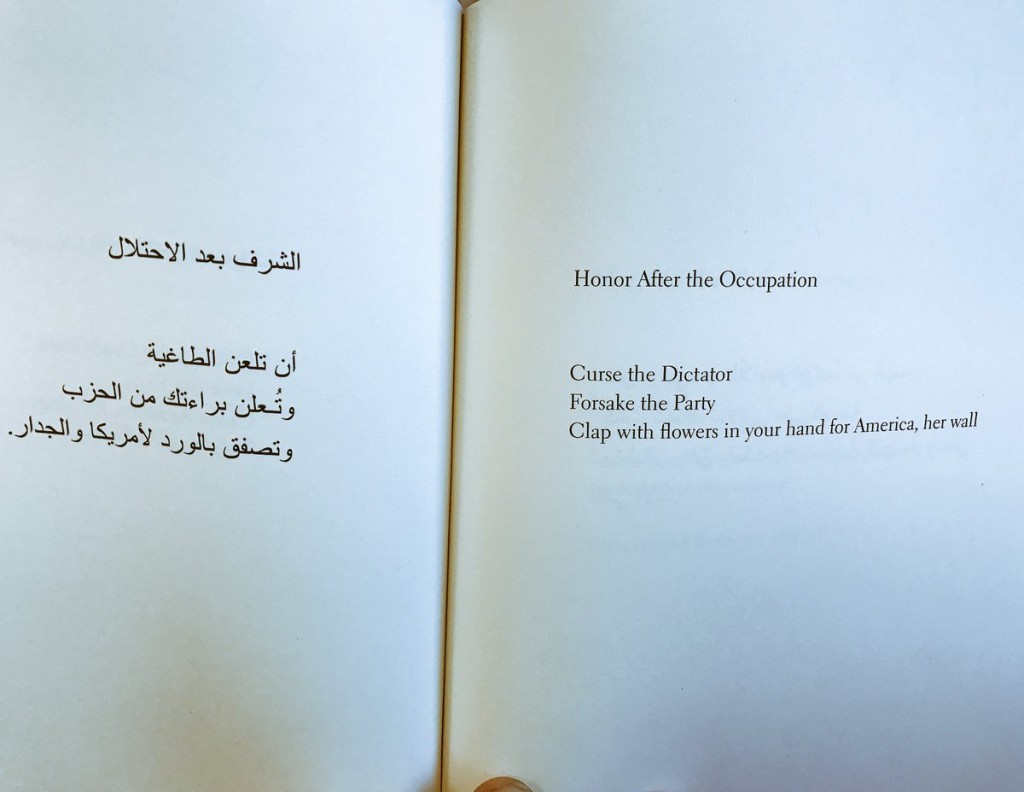 الشرف بعد الاحتلال
أن تلعن الطاغية
وتُعلن براءتك من الحزب
وتصفق بالورد لأمريكا والجدار.
Honor After the Occupation
Curse the Dictator
Forsake the Party
Clap with flowers in your hand for America, her wall